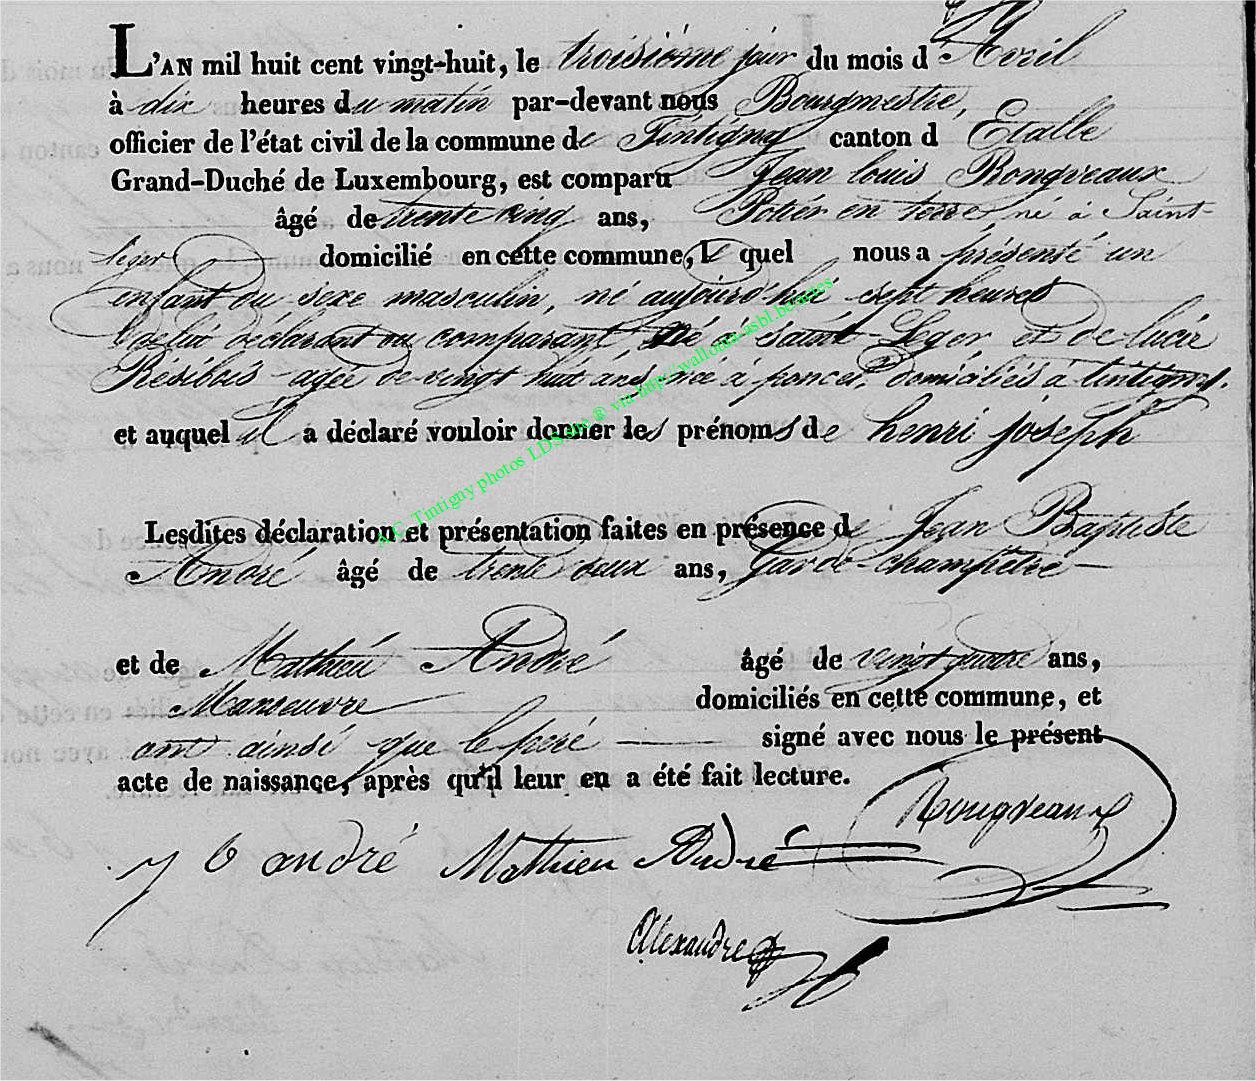 L'AN mil huit cent vingt-huit, le troisième jour du mois d'Avril
à dix heures du matin par-devant nous Bourgmestre,
officier de l'état civil de la commune de Tintigny canton d Etalle
Grand-Duché de Luxembourg, est comparu Jean louis Rongveaux
âgé de trente cinq ans, Potier en terre né à Saint-
leger domicilié en cette commune, le quel nous a présenté un
enfant du sexe masculin, né aujourd'hui sept heures
de lui déclarant ou comparant, né à saint Leger et de lucie
Résibois agée de vingt huit ans née à poncel, domiciliés à tintigny.
et auquel il a déclaré vouloir donner les prénoms de henri joseph
Lesdites déclaration et présentation faites en présence de Jean Baptiste
André âgé de trente deux ans, Garde-champêtre
et de Mathieu André âgé de vingt quatre ans,
Manoeuvre domiciliés en cette commune, et
ont ainsi que le peré signé avec nous le présent
acte de naissance, après qu'il leur en a été fait lecture.
Rongveaux
J b andré Mathieu André
Alexandre
A.C. Tintigny photos LDS site ® via http://wallonia-asbl.be/actes